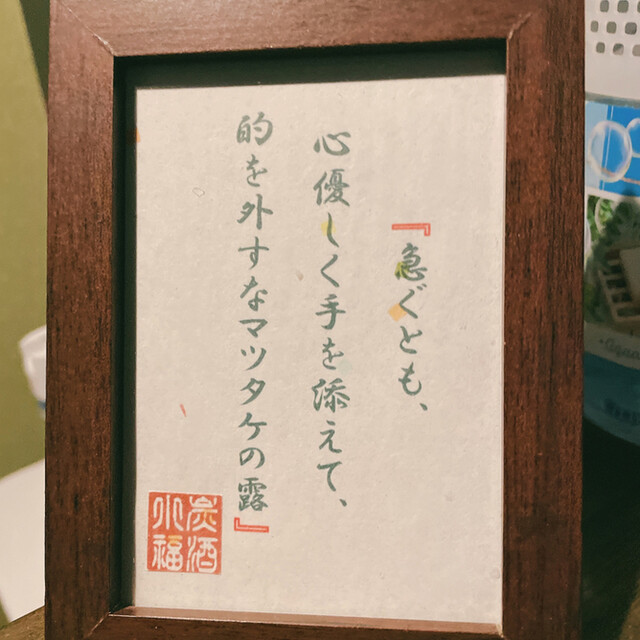 『急ぐとも、
心優しく手を添えて、
的を外すなマツタケの露』
炭酒
小福